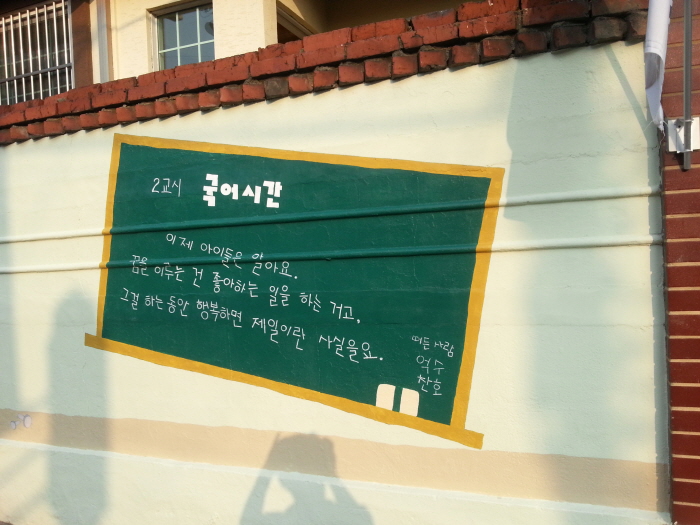 2교시 국어시간
이제 아이들은 알아요.
꿈을 이루는 건 좋아하는 일을 하는 거고,
그걸 하는동안 행복하면 제일이란 사실을요.
떠든 사람
억수
찬호